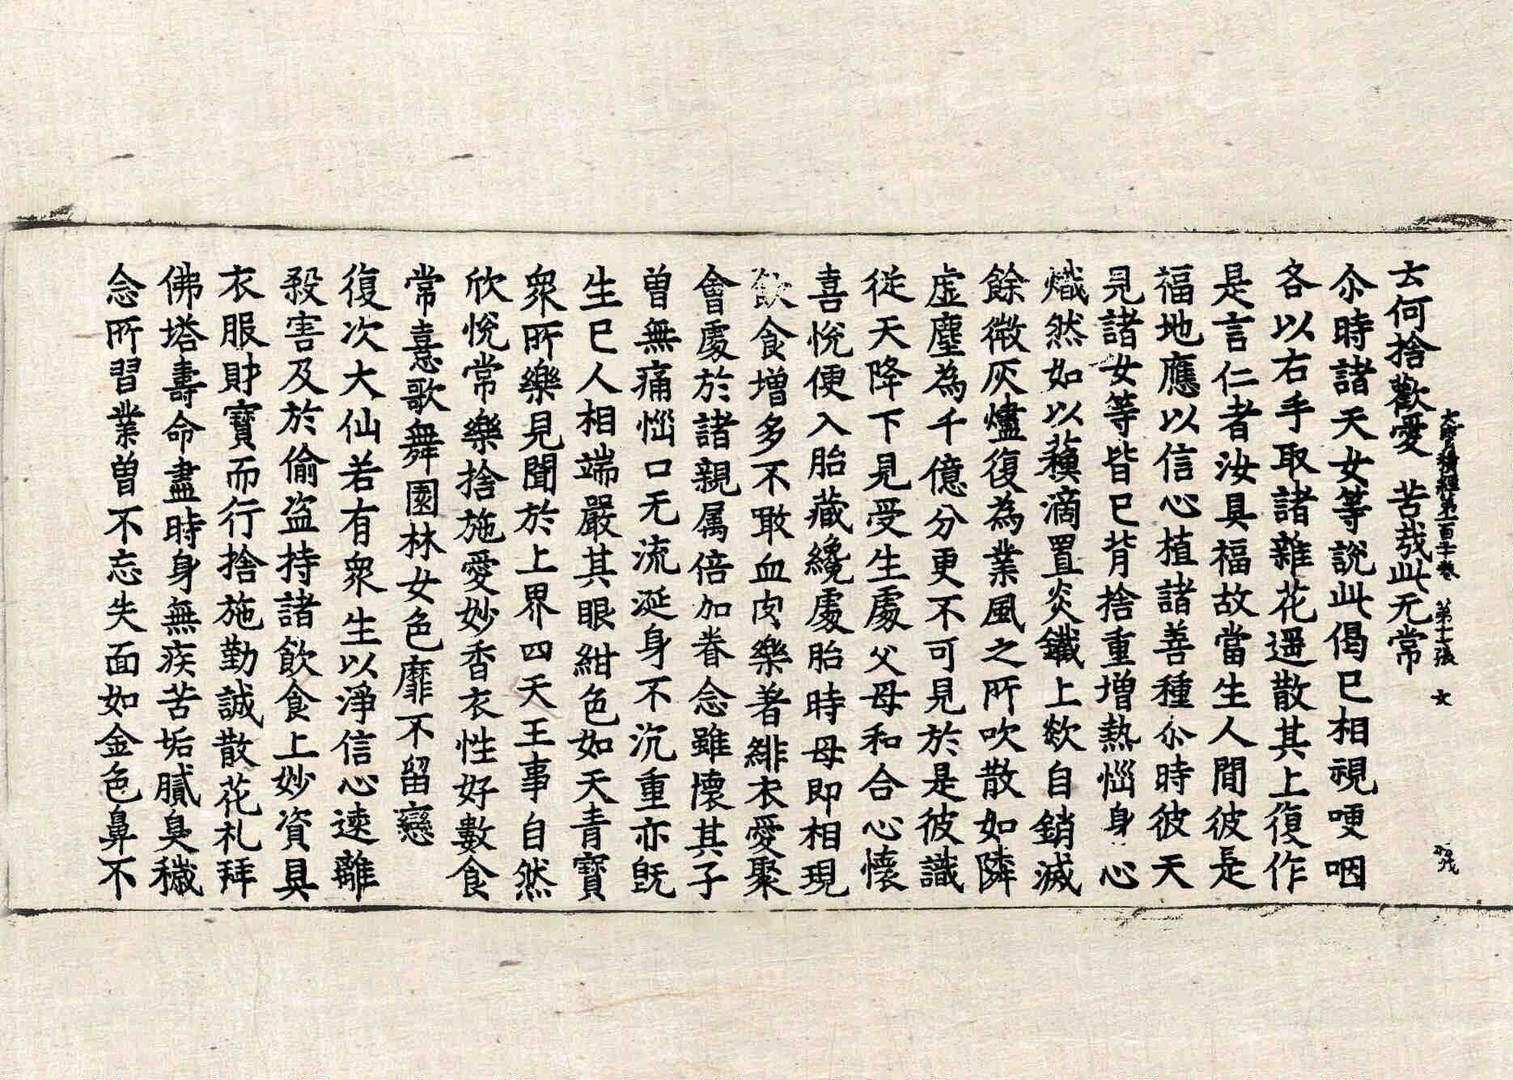 大寶積經第一百十卷 第十七張 大
去何捨歡愛 苦哉此无常
尒時諸天女等說此偈已相視哽咽
各以右手取諸雜花遥散其上復作
是言仁者汝具福故當生人間彼是
福地應以信心植諸善種尒時彼天
見諸女等皆已背捨重增熱惱身心
熾然如以䕷滴置炎鐵上欻自銷滅
餘微灰燼復為業風之所吹散如隣
虛塵為千億分更不可見於是彼識
從天降下見受生處父母和合心懷
喜悅便入胎藏纔處胎時母即相現
飲食增多不敢血肉樂著緋衣愛聚
會處於諸親属倍加眷念雖懷其子
曾無痛惱口无流涎身不沉重亦旣
生已人相端嚴其眼紺色如天青寶
衆所樂見聞於上界四天王事自然
欣悅常樂捨施愛妙香衣性好數食
常憙歌舞園林女色靡不留戀
復次大仙若有衆生以淨信心速離
殺害及於偷盜持諸飲食上妙資具
衣服財寶而行捨施勤誠散花礼拜
佛塔壽命盡時身無疾苦垢膩臭穢
念所習業曾不忘失面如金色鼻不